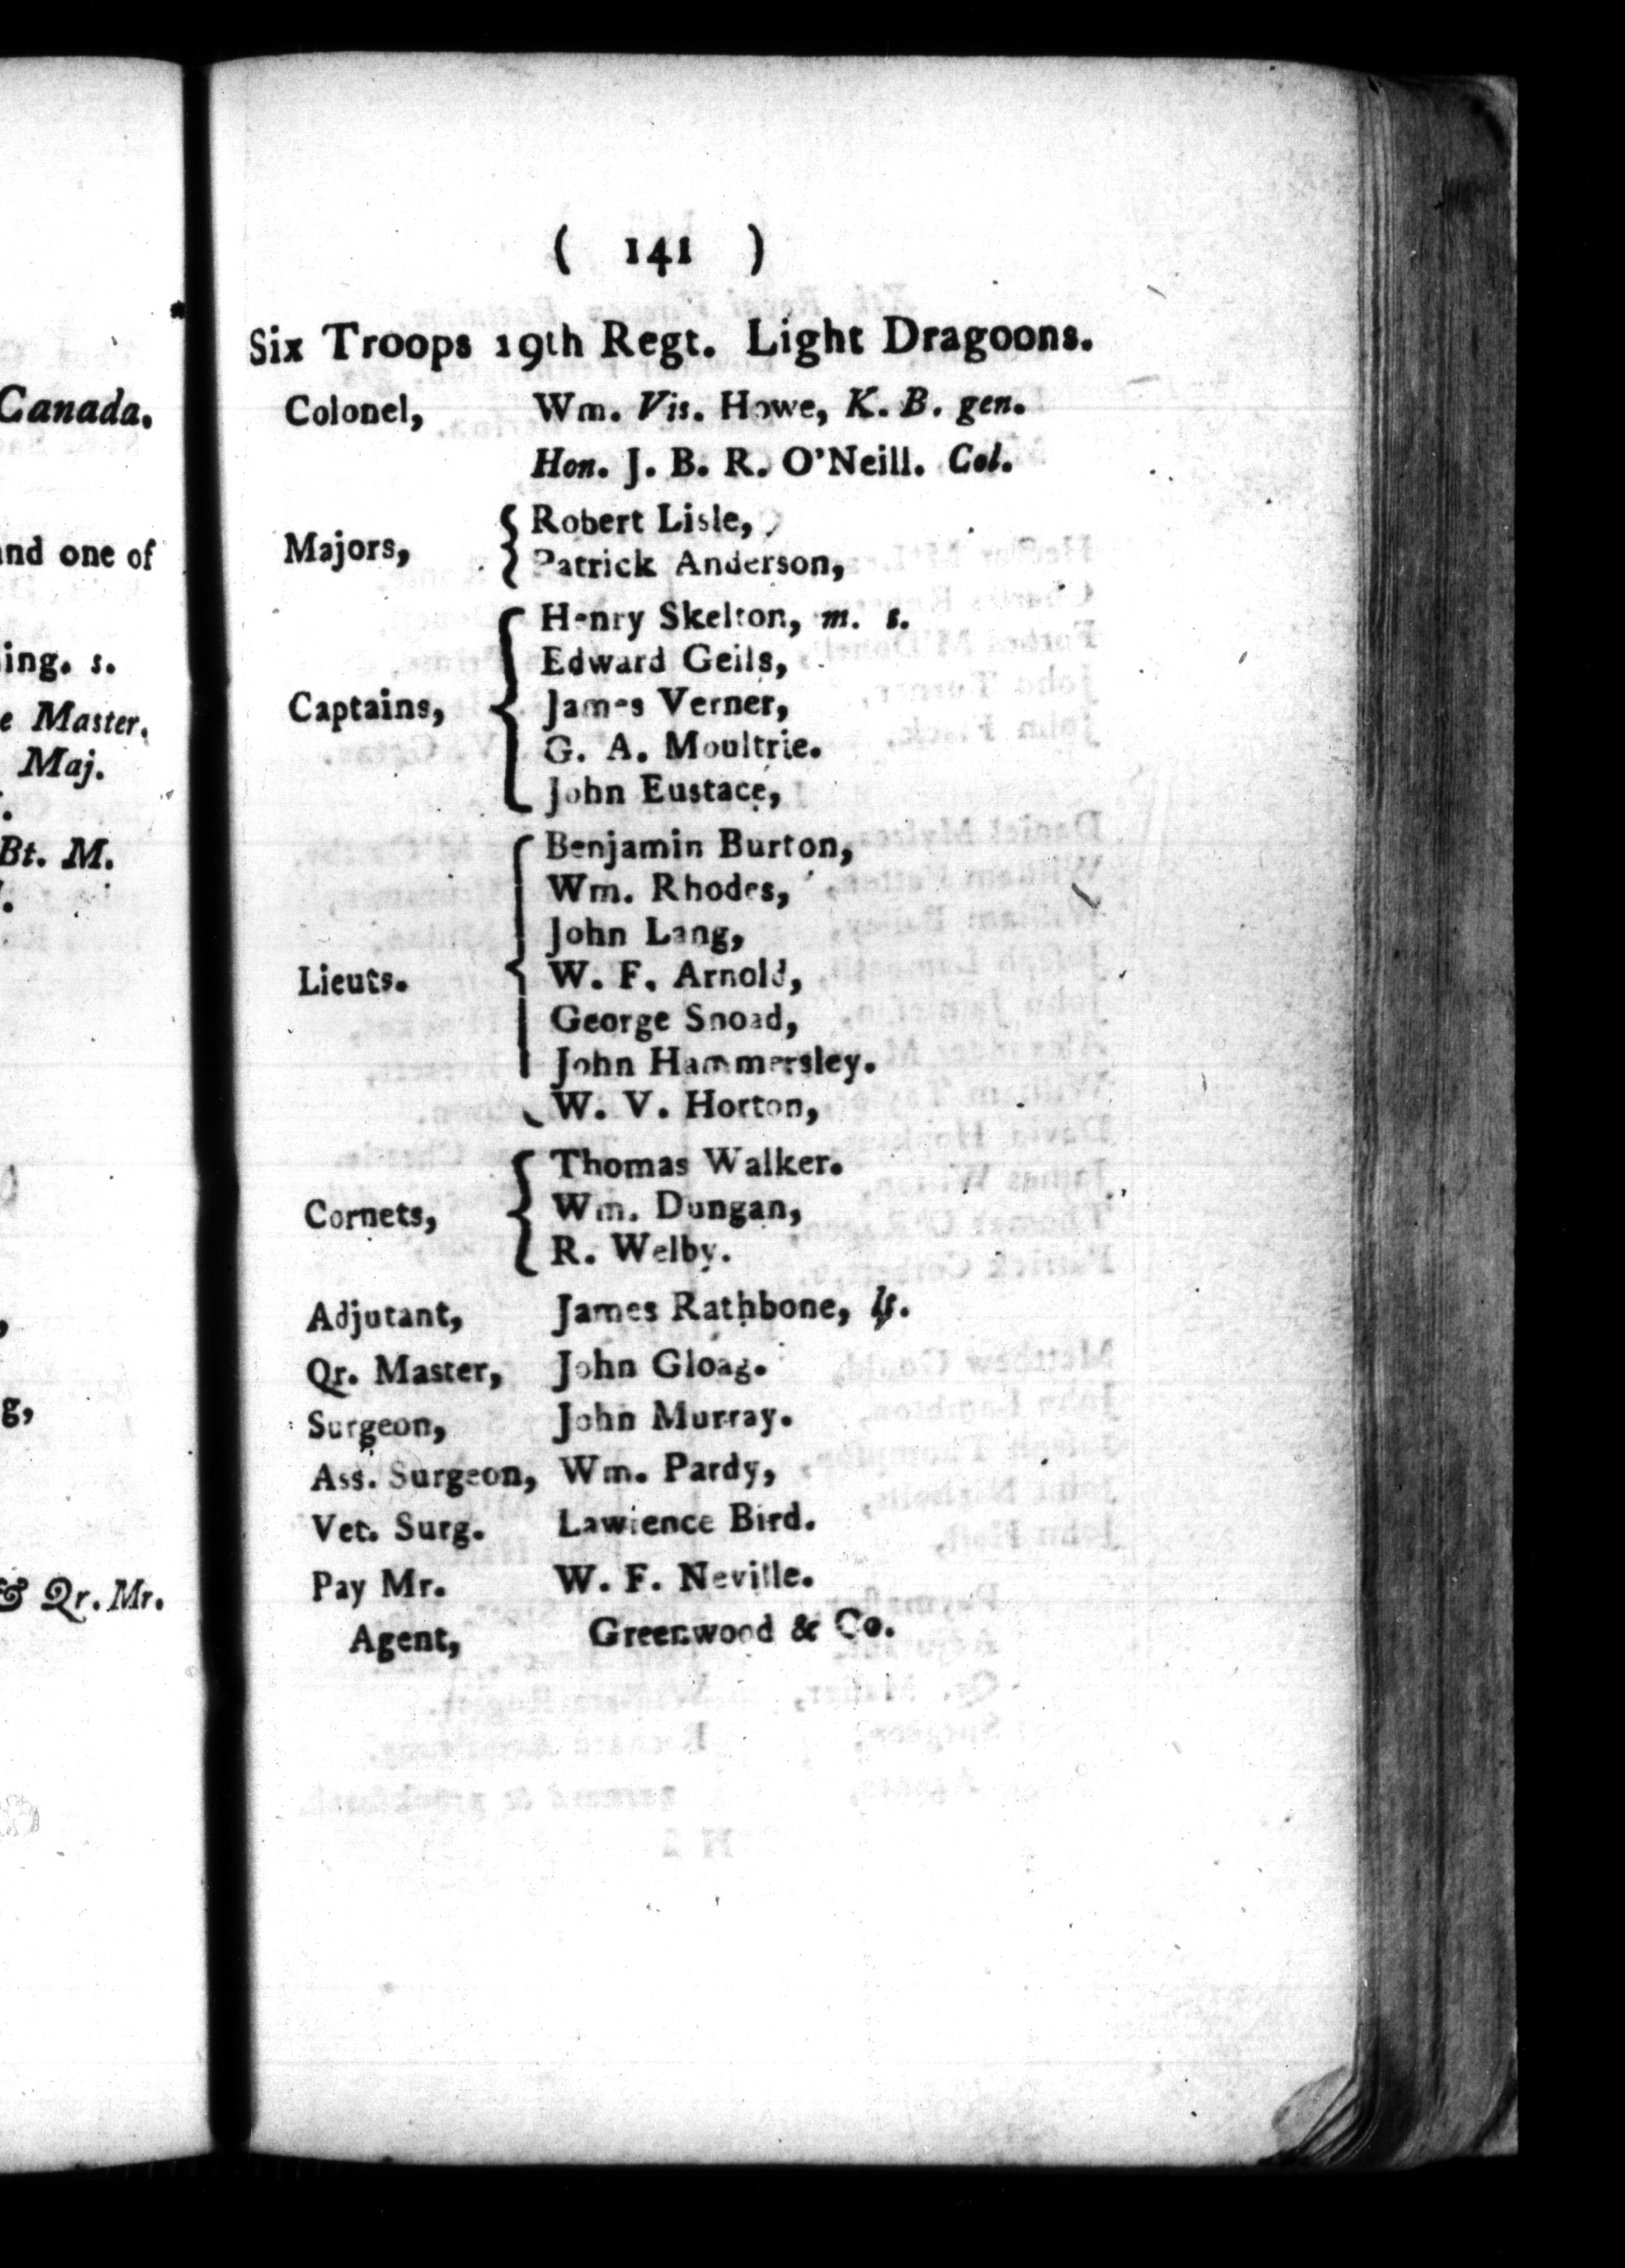 Canada.
and one of
ing. s.
e Master.
Maj.
Bt. M.
g,
& Qr. Mr.
( 141 )
Six Troops 19th Regt. Light Dragoons.
Colonel, Wm. Vis. Howe, K. B. gen.
Hon. J. B. R. O'Neill. Col.
Majors, { Robert Lisle,
Patrick Anderson,
Captains, { Henry Skelton, m. s.
Edward Geils,
James Verner,
G. A. Moultrie.
John Eustace,
Lieuts. { Benjamin Burton,
Wm. Rhodes,
John Lang,
W. F. Arnold,
George Snoad,
John Hammersley.
W. V. Horton,
Cornets, { Thomas Walker.
Wm. Dungan,
R. Welby.
Adjutant, James Rathbone, lt.
Qr. Master, John Gloag.
Surgeon, John Murray.
Ass. Surgeon, Wm. Pardy,
Vet. Surg. Lawrence Bird.
Pay Mr. W. F. Neville.
Agent, Greenwood & Co.